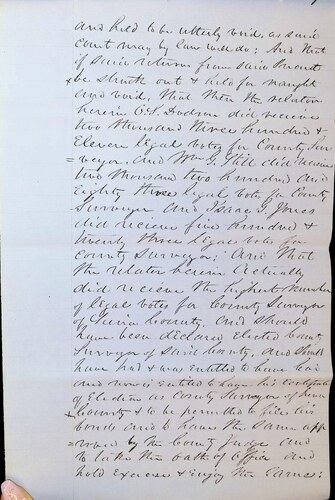 and held to be utterly void, as said
court may by law well do; And that
if said returns from said Precinct
be struck out & held for naught
and void, that then the relator
herein C.S. Dodson did receive
two thousand three hundred &
Eleven legal votes for County Sur
=veyor, and Wm G. Hill did receive
two thousand two hundred and
Eighty three legal votes for County
Surveyor and Isaac G. Jones
did receive five hundred &
twenty three legal votes for
County Surveyor; And that
the relator herein actually
did receive the highest number
of legal votes for County Surveyor
of said County. And should
have been declared elected County
Surveyor of said County, and should
have had & was entitled to have had
and now is entitled to have his certificate
of Election as County Surveyor of
County & to be permitted to file his
bonds and to have the same app
=roved by the County Judge and
to take the oath of office and
hold Exercise & Enjoy the same;